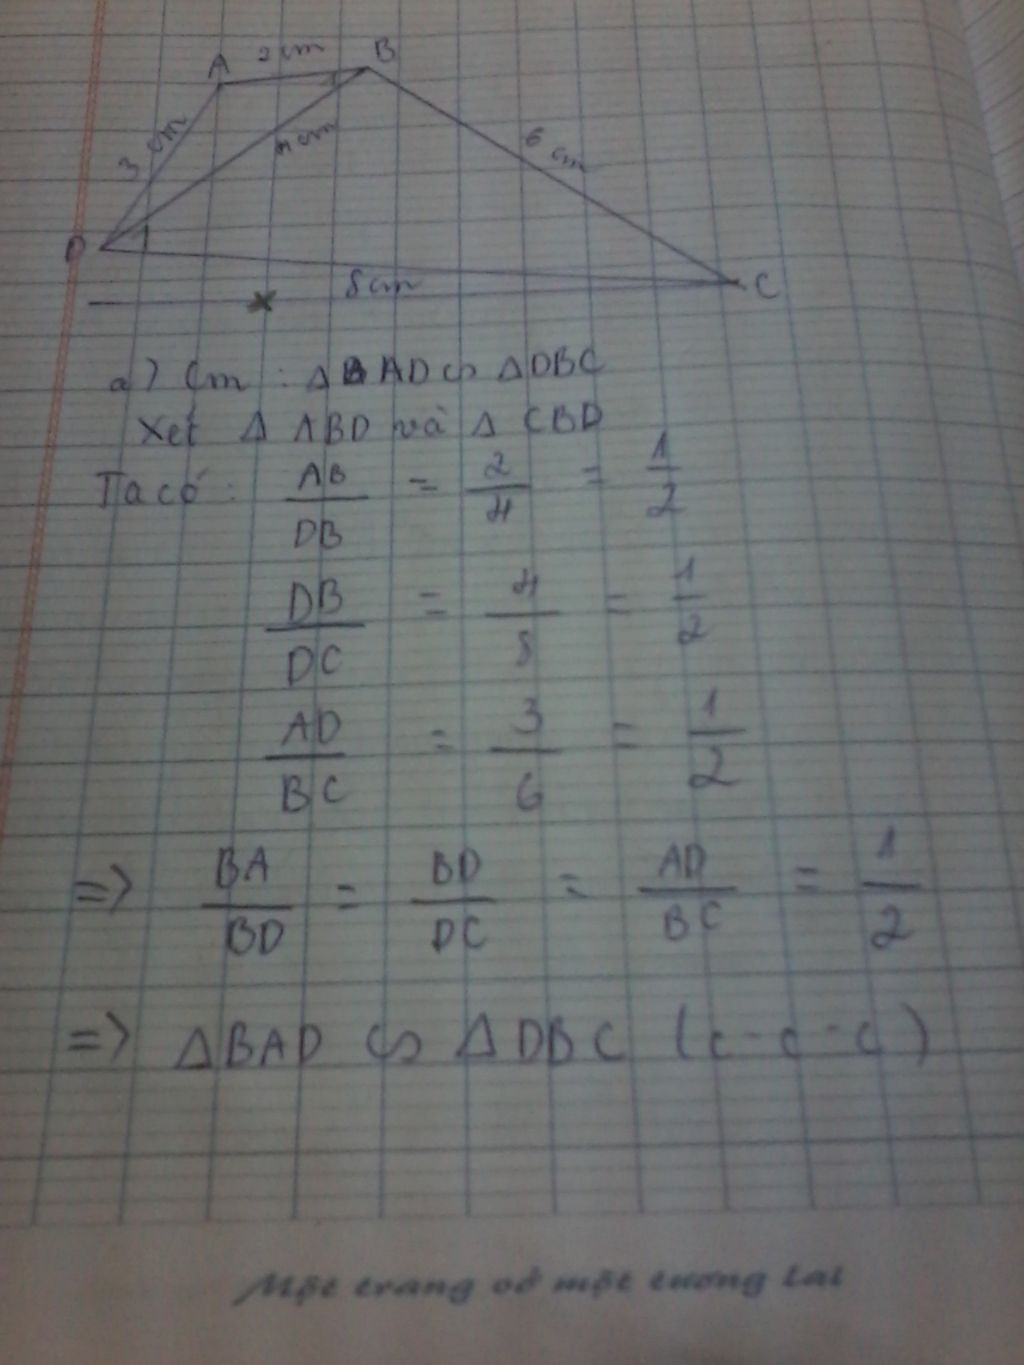 A 2 cm B
3 cm
4 cm
6 cm
D 1
8 cm C
a) Cm : Δ BAD ∽ Δ DBC
Xét Δ ABD và Δ CBD
Ta có : AB/DB = 2/4 = 1/2
DB/DC = 4/8 = 1/2
AD/BC = 3/6 = 1/2
=> BA/BD = BD/DC = AD/BC = 1/2
=> Δ BAD ∽ Δ DBC (c - c - c)
Một trang vở một tương lai